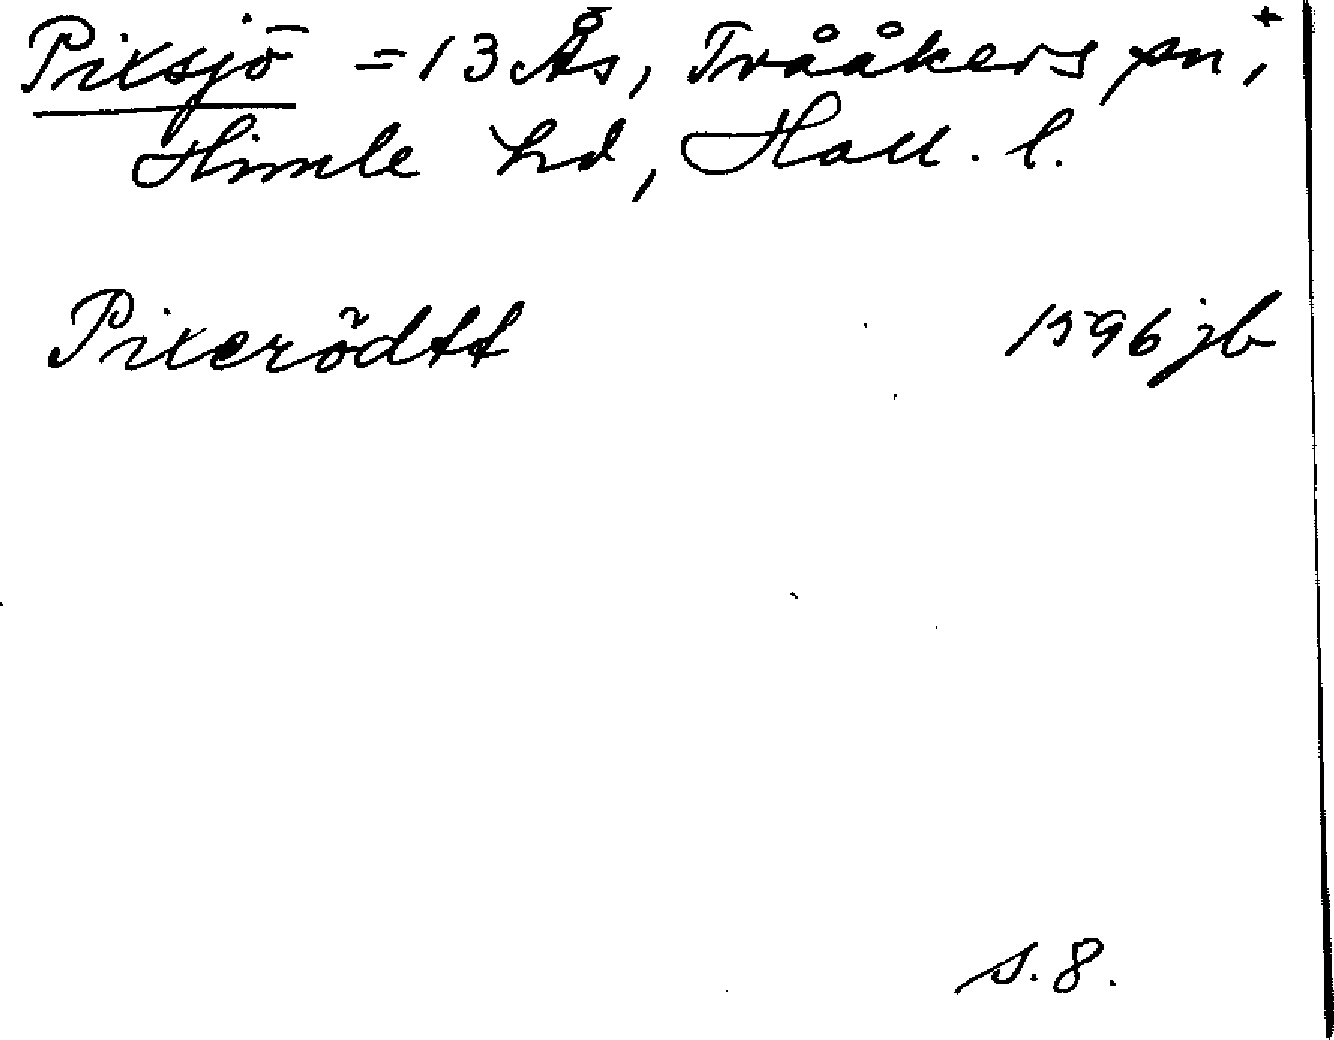 Pixsjö = 13 Ås, Tvååkers sn, +
Himle hd, Hall. l.
Pixerödtt 1596 jb
s. 8.